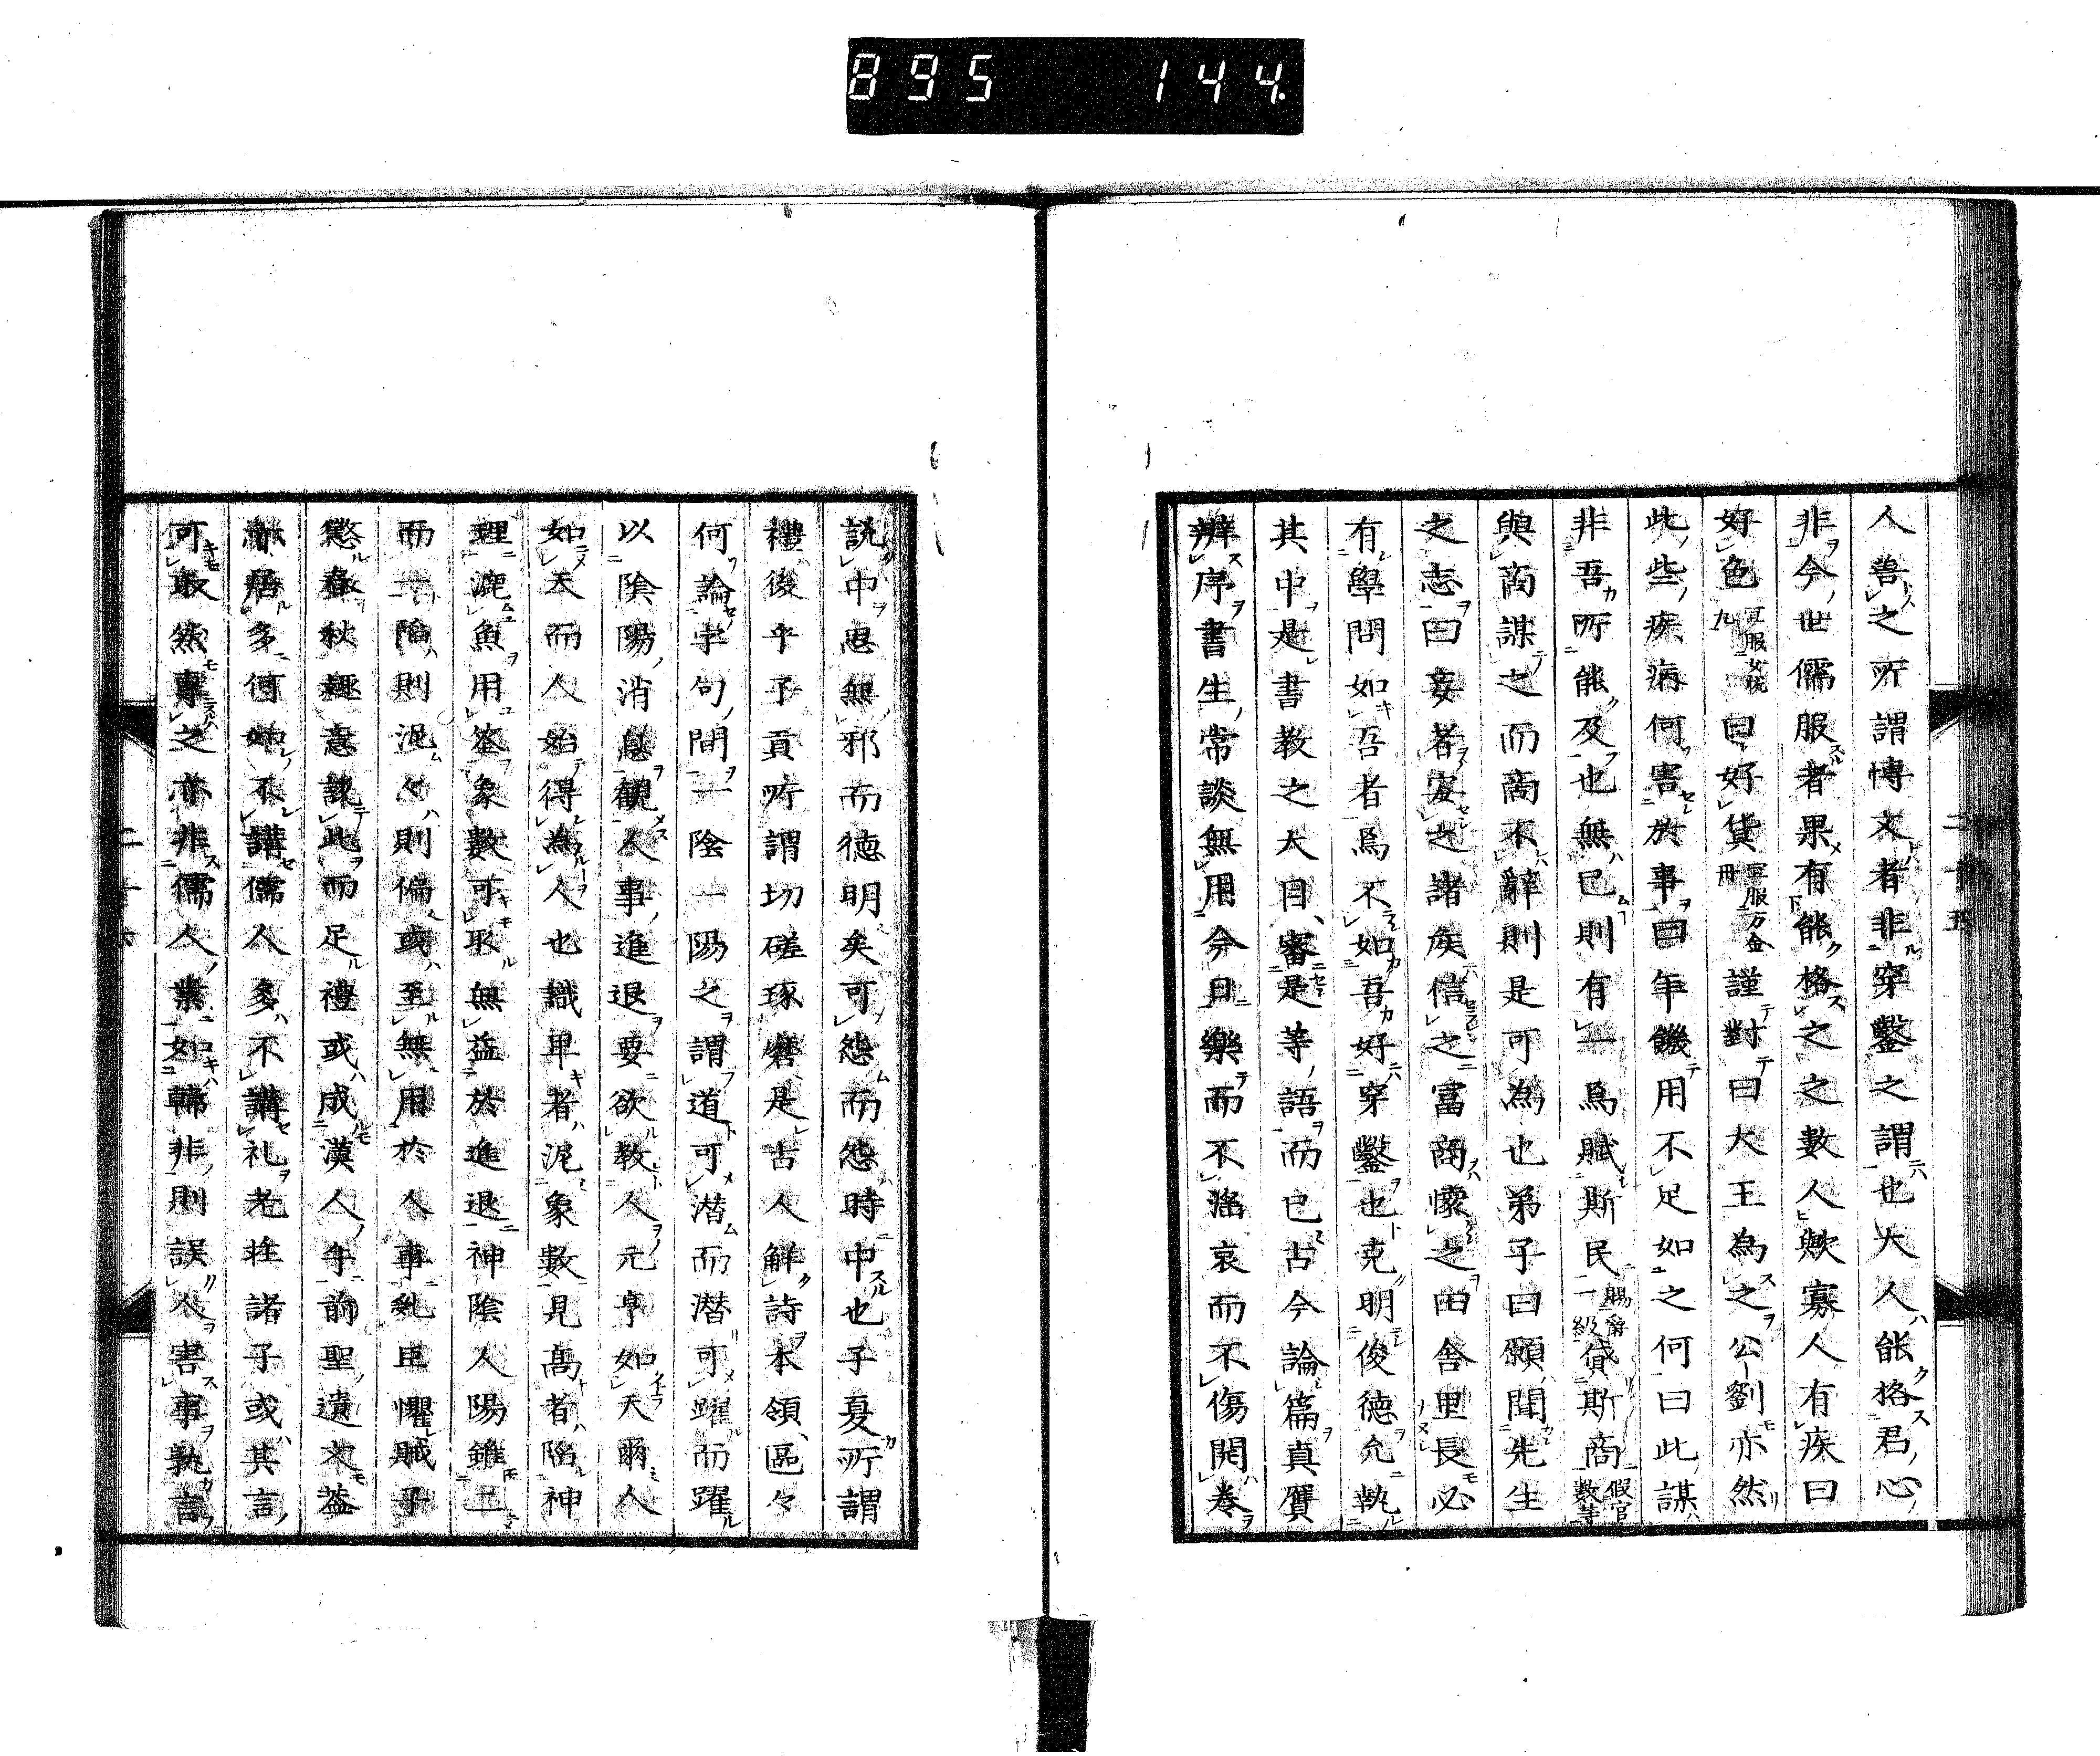 895 144
人善之所謂博文者非穿鑿之謂也大人能格君心
非今世儒服者果有能格之之數人歟寡人有疾曰
好色曰好貨謹對曰大王為之公劉亦然
此些疾病何害於事曰年饑用不足如之何曰此謀
非吾所能及也無已則有一焉賦斯民賜爵一級貸斯商假官數等
與商謀之而商不辭則是可為也弟子曰願聞先生
之志曰妄者安之諸疾信之富商懷之田舍里長必
有學問如吾者焉不如吾好穿鑿也克明俊德允執
其中是書教之大目審是等語而已古今論篇真贋
辨序書生常談無用今日樂而不滛哀而不傷開卷
説中思無邪而德明矣可怨而怨時中也子夏所謂
禮後乎子貢所謂切磋琢磨是古人解詩本領區々
何論字句間一陰一陽之謂道可潜而潜可躍而躍
以陰陽消息観人事進退要欲教人元亨如天爾人
如天而人始得為人也識卑者泥象數見高者陷神
理漉魚用筌象數可取無益於進退神陰人陽雖二
而一陷則泥々則偏或至無用於人事乱臣懼賊子
懲春秋趣意說此而足禮或成漢人年前聖遺文蓋
亦居多何如不講儒人多不講礼老荘諸子或其言
可取然專之亦非儒人業如韓非則誤人害事孰言